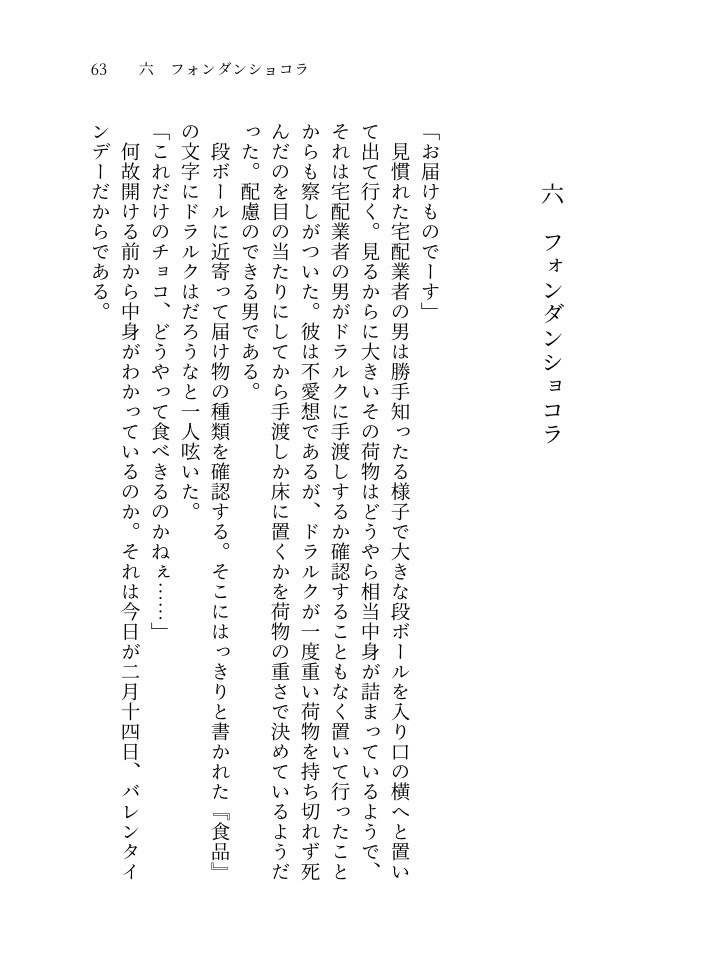 63　六　フォンダンショコラ
六　フォンダンショコラ
「お届けものでーす」
　見慣れた宅配業者の男は勝手知ったる様子で大きな段ボールを入り口の横へと置い
て出て行く。見るからに大きいその荷物はどうやら相当中身が詰まっているようで、
それは宅配業者の男がドラルクに手渡しするか確認することもなく置いて行ったこと
からも察しがついた。彼は不愛想であるが、ドラルクが一度重い荷物を持ち切れず死
んだのを目の当たりにしてから手渡しか床に置くかを荷物の重さで決めているようだ
った。配慮のできる男である。
　段ボールに近寄って届け物の種類を確認する。そこにはっきりと書かれた『食品』
の文字にドラルクはだろうなと一人呟いた。
「これだけのチョコ、どうやって食べきるのかねぇ……」
　何故開ける前から中身がわかっているのか。それは今日が二月十四日、バレンタイ
ンデーだからである。